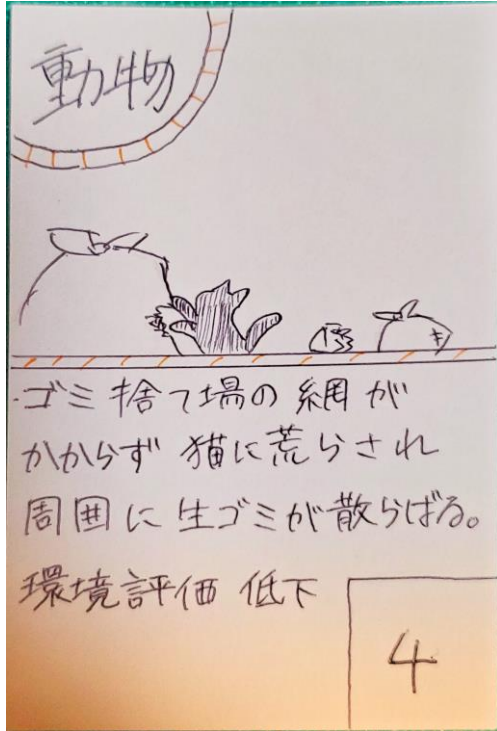 動物
・ゴミ捨て場の網が
かからず 猫に荒らされ
周囲に生ゴミが散らばる。
環境評価 低下
4